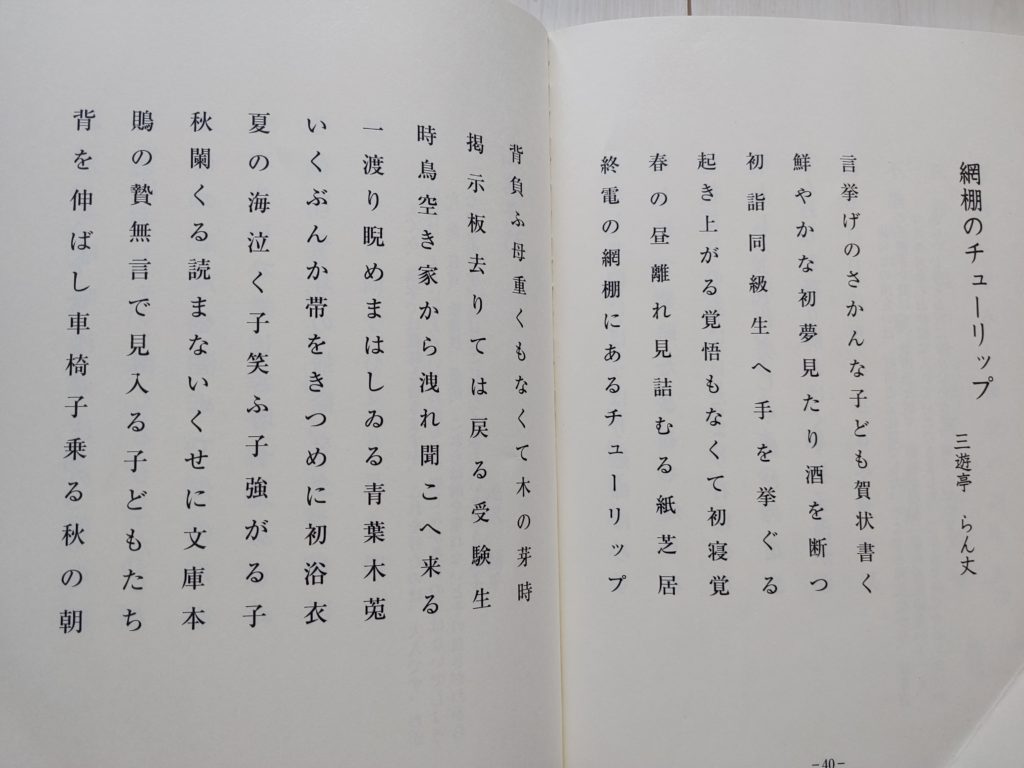 網棚のチューリップ
三遊亭 らん丈
言挙げのさかんな子ども賀状書く
鮮やかな初夢見たり酒を断つ
初詣同級生へ手を挙ぐる
起き上がる覚悟もなくて初寝覚
春の昼離れ見詰むる紙芝居
終電の網棚にあるチューリップ
-40-
背負ふ母重くもなくて木の芽時
掲示板去りては戻る受験生
時鳥空き家から洩れ聞こへ来る
一渡り睨めまはしゐる青葉木菟
いくぶんか帯をきつめに初浴衣
夏の海泣く子笑ふ子強がる子
秋闌くる読まないくせに文庫本
鵙の贄無言で見入る子どもたち
背を伸ばし車椅子乗る秋の朝